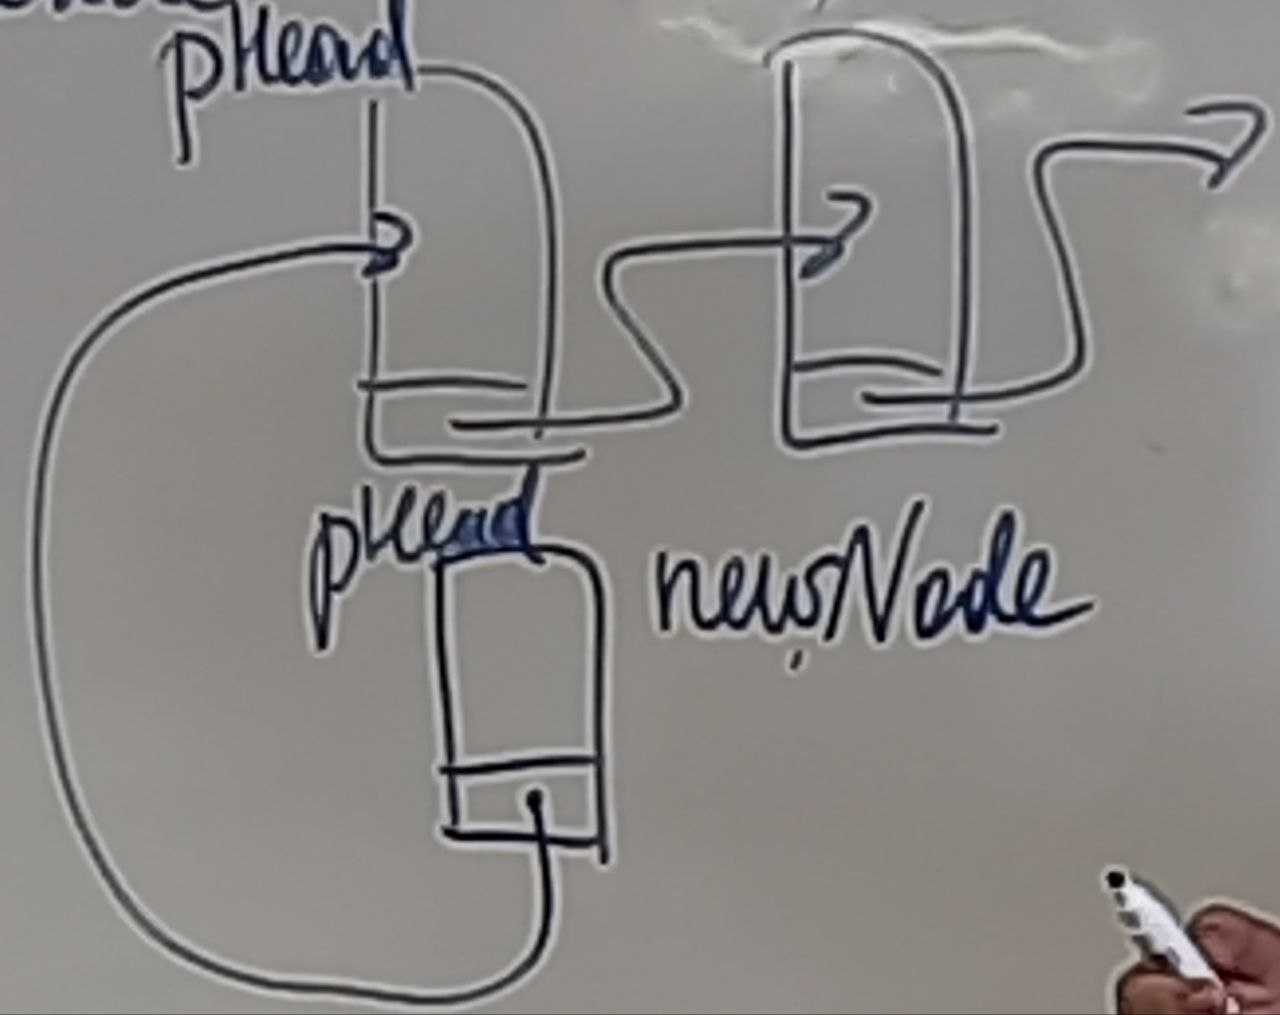 pHead
pHead
newNode